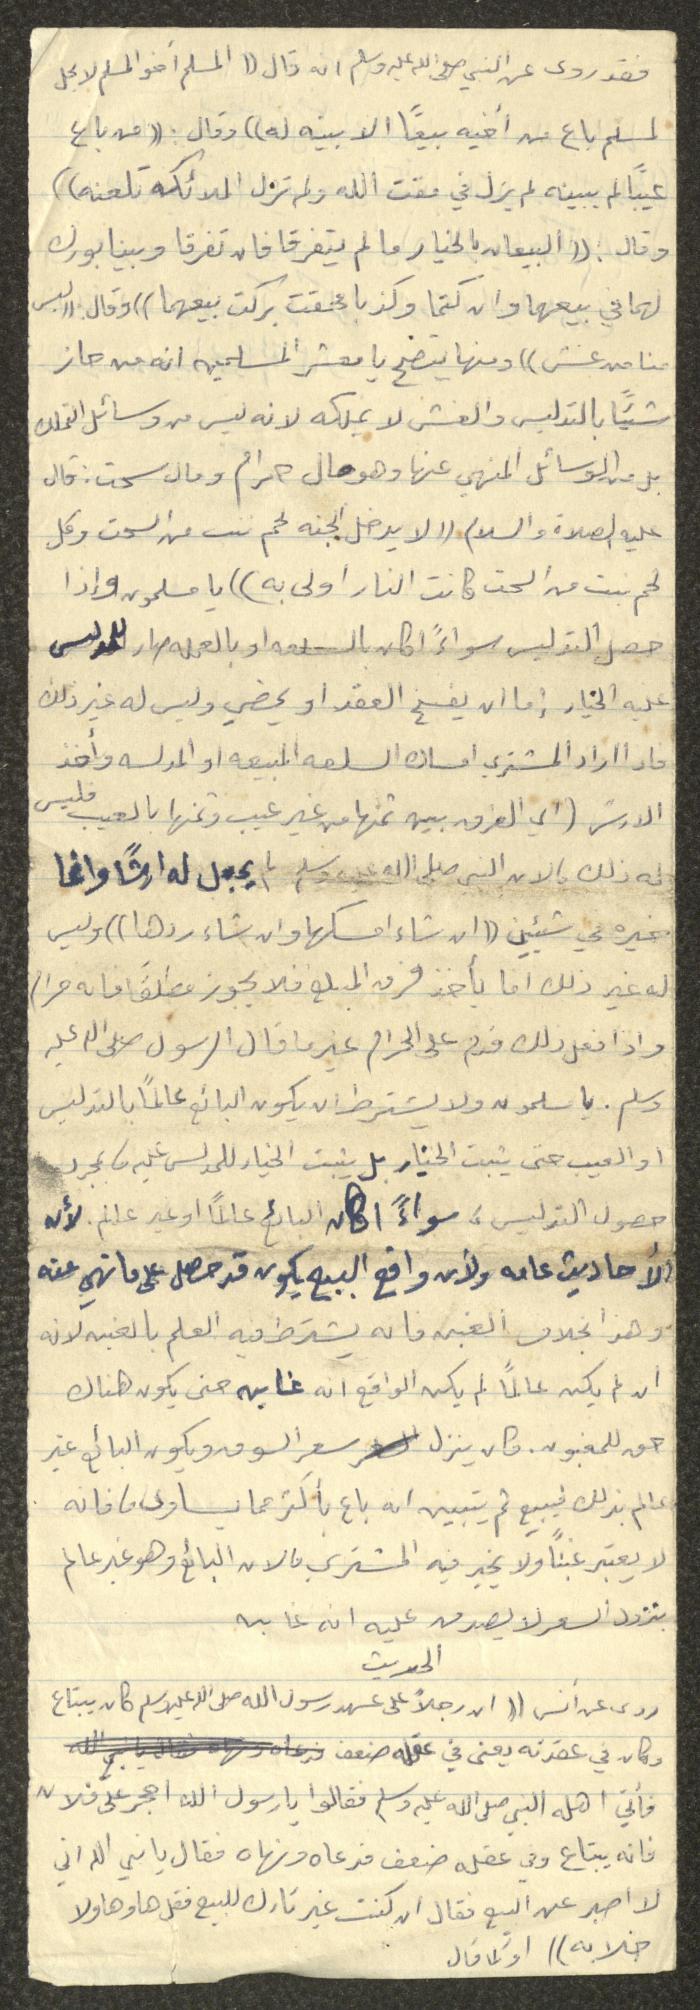 فقد روى عن النبي صلى الله عليه وسلم انه قال (( المسلم أخو المسلم لا يحل
لمسلم باع من أخيه بيعًا الا بينه له)) وقال: ((من باع
عيبًا لم يبينه لم يزل في مقت الله ولم تزل الملائكه تلعنه))
وقال: (( البيعان بالخيار ما لم يتفرقا فان تفرقا وبينا بورك
لهما في بيعهما وان كتما وكذبا محقت بركت بيعهما)) وقال: ((ليس
منا من غش)) ومنها يتضح يا معشر المسلمين انه من حاز
شيئًا بالتدليس والغش لا يملكه لانه ليس من وسائل التملك
بل من الوسائل المنهي عنها وهو مال حرام ومال سحت: قال
عليه الصلاة والسلام ((لا يدخل الجنه لحم نبت من السحت وكل
لحم نبت من السحت كانت النار أولى به)) يا مسلمون وإذا
حصل التدليس سواءً اكان بالسلعه او بالعمله صار للمدلس
عليه الخيار إما ان يفسخ العقد او يمضي وليس له غير ذلك
فاذا اراد المشتري امساك السلعه المبيعه او المدلسه وأخذ
الارش (اي الفرق بين ثمنها من غير عيب وثمنها بالعيب فليس
له ذلك، لان النبي صلى الله عليه وسلم لم يجعل له ارشًا وانما
خيره في شيئين ((ان شاء امسكها وان شاء ردها)) وليس
له غير ذلك اما يأخذ فرق المبلغ فلا يجوز مطلقًا فانه حرام
واذا فعل ذلك قدم على الحرام غير ما قال الرسول صلى الله عليه
وسلم. يا مسلمون ولا يشترط ان يكون البائع عالمًا بالتدليس
او العيب حتى يثبت الخيار بل يثبت الخيار للمدلس عليه بمجرد
حصول التدليس، سواءً اكان البائع عالمًا او غير عالم. لأن
الأحاديث عامه ولأن واقع البيع يكون قد حصل على ما نهي عنه
وهذا بخلاف الغبن فانه يشترط فيه العلم بالغبن لانه
ان لم يكن عالمًا لم يكن الواقع انه غابن حتى يكون هناك
حق للمغبون. كان ينزل سعر السوق ويكون البائع غير
عالم بذلك فيبيع ثم يتبين انه باع بأكثر مما يساوى، فانه
لا يعتبر غبنًا ولا يخير فيه المشتري، لان البائع وهو غير عالم
بنزول السعر لا يصدق عليه انه غابن
الحديث
روى عن أنس (( ان رجلاً على عهد رسول الله صلى الله عليه وسلم كان يبتاع
وكان في عقدته يعنى في عقله ضعف فدعاه ونهاه فقال يا نبي الله
فأتى اهله النبي صلى الله عليه وسلم فقالوا يا رسول الله احجر على فلان
فانه يبتاع وفي عقله ضعف فدعاه ونهاه فقال يا نبي الله اني
لا أصبر عن البيع فقال ان كنت غير تارك للبيع فقل ها وها ولا
خلابه)) او كما قال